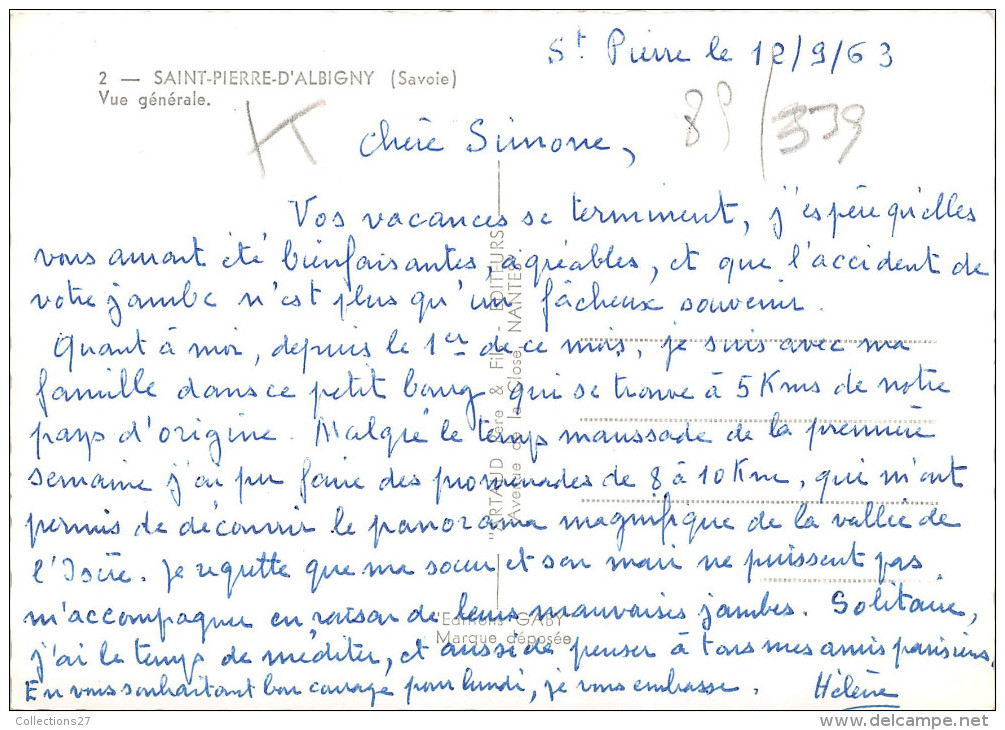 St Pierre le 12/9/63
2 — SAINT-PIERRE-D'ALBIGNY (Savoie)
Vue générale.
K
89/339
Chère Simone,
Vos vacances se terminent, j'espère qu'elles
vous auront été bienfaisantes, agréables, et que l'accident de
votre jambe n'est plus qu'un fâcheux souvenir.
Quant à moi, depuis le 1er de ce mois, je suis avec ma
famille dans ce petit bourg qui se trouve à 5 Kms de notre
pays d'origine. Malgré le temps maussade de la première
semaine j'ai pu faire des promenades de 8 à 10 Km, qui m'ont
permis de découvrir le panorama magnifique de la vallée de
l'Isère. Je regrette que ma sœur et son mari ne puissent pas
m'accompagner en raison de leurs mauvaises jambes. Solitaire,
j'ai le temps de méditer, et aussi de penser à tous mes amis parisiens.
En vous souhaitant bon courage pour lundi, je vous embrasse. Hélène
"ARTAUD Père & Fils - EDITEURS
Avenue de la Close, NANTES.
Editions "GABY"
Marque déposée
Collections27